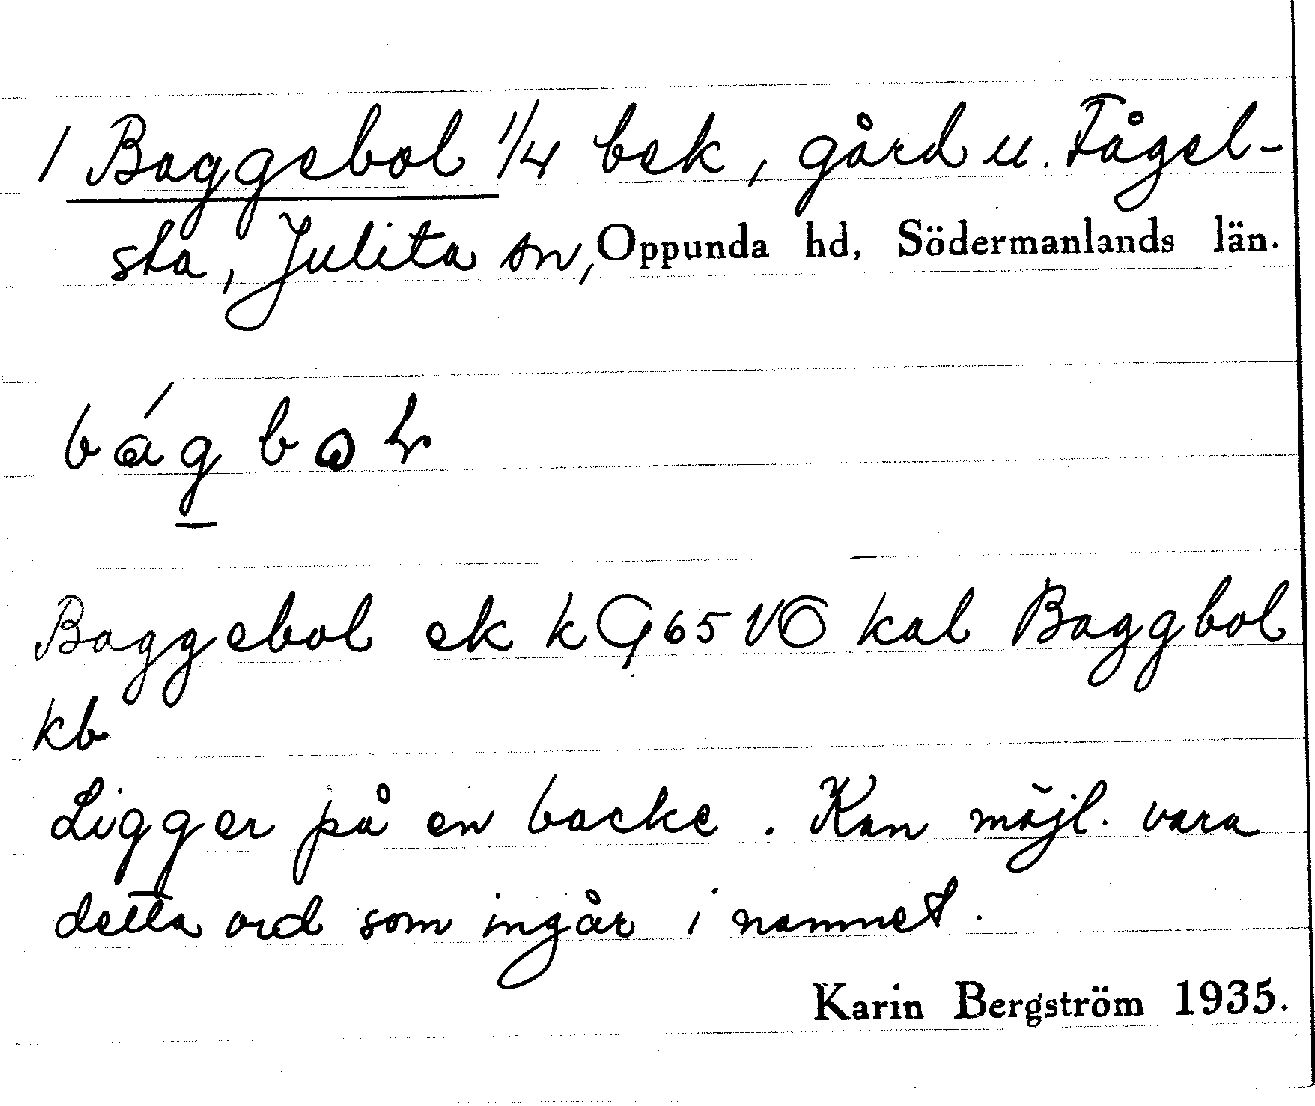 1 Baggebol 1/4 bek, gård u. Fågel-
sta, Julita sn, Oppunda hd, Södermanlands län.
bág bol
Baggebol ek k G65 VO kal Baggbol
kb
Ligger på en backe. Kan möjl. vara
detta ord som ingår i namnet.
Karin Bergström 1935.